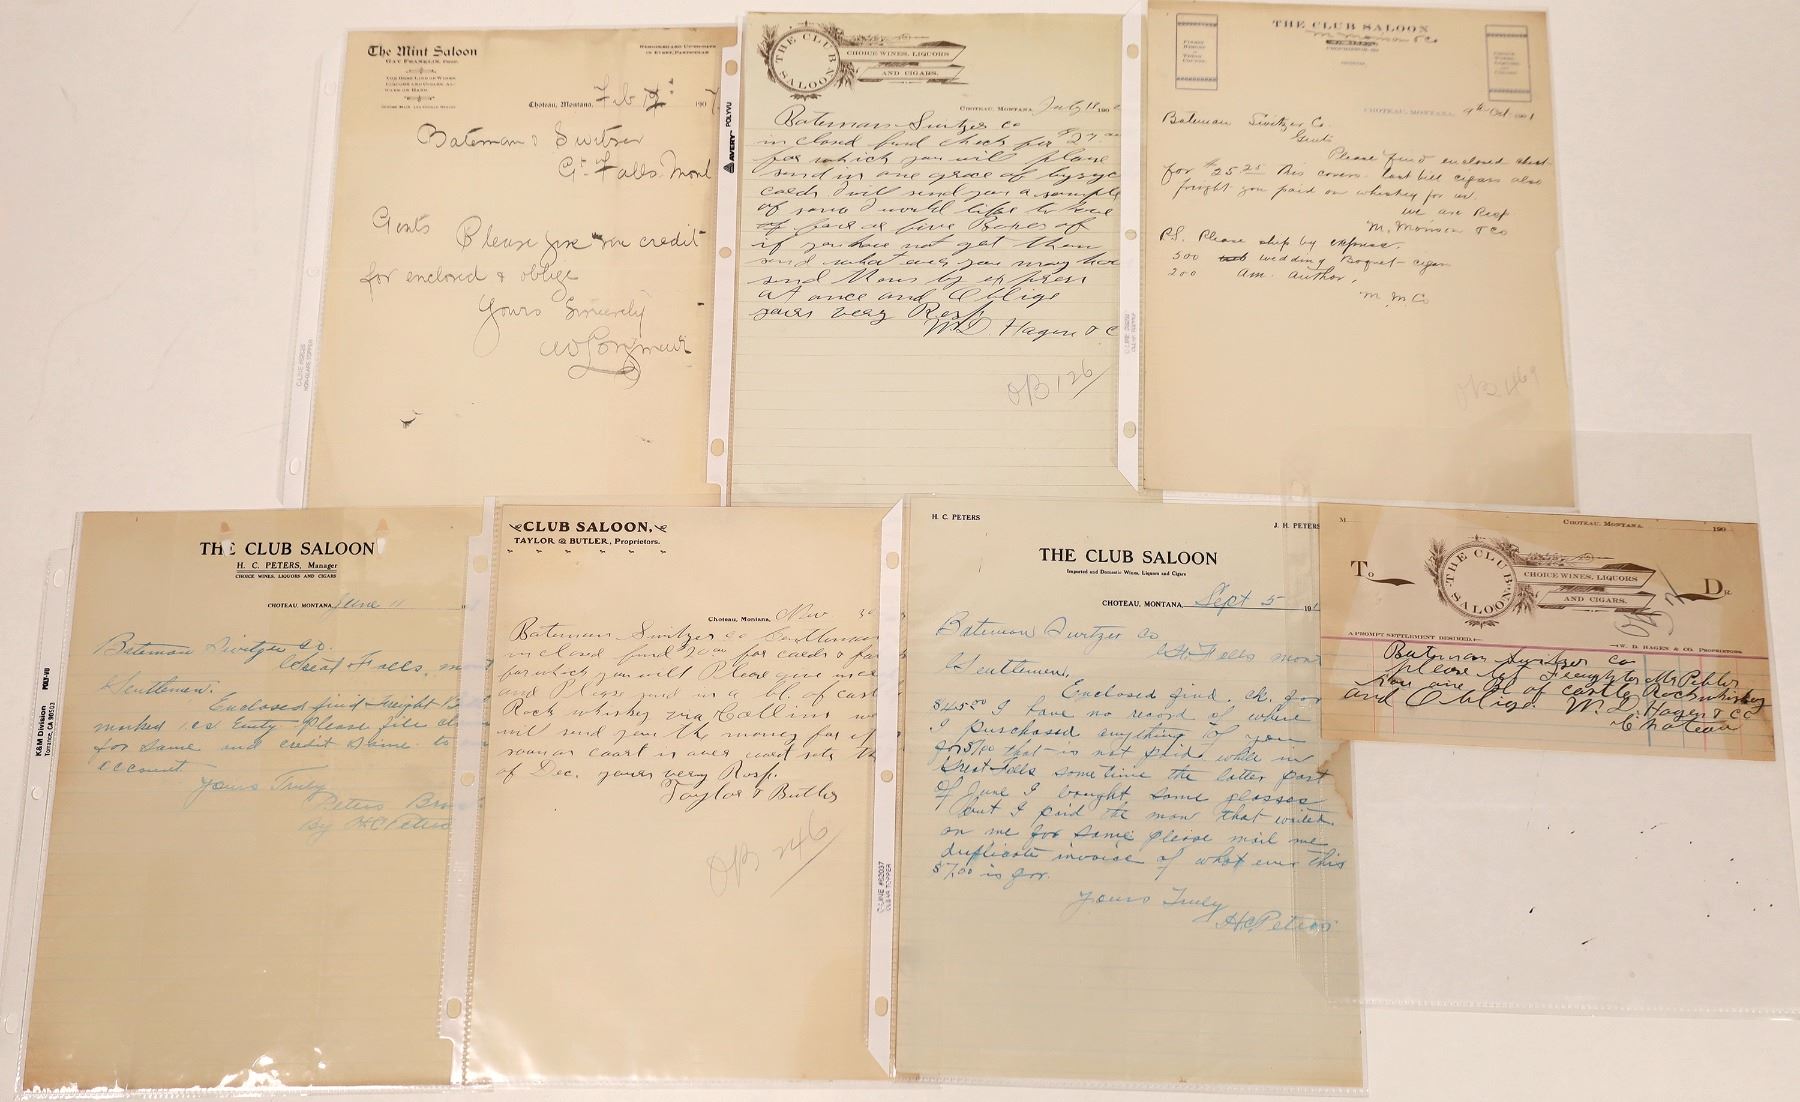 The Mint Saloon
GAY FRANKLIN, PROP.
Choteau, Montana, Feb 190
Bateman & Switzer
Gt Falls Mont
Gents Please give me credit
for enclosed & oblige
Yours Sincerely
THE CLUB SALOON
CHOICE WINES, LIQUORS
AND CIGARS.
CHOTEAU, MONTANA, July 18 190
Bateman Switzer co
in closed find check for
for which you will please
send us one groce of
cards I will send you a sample
of I would like to have
or five Boxes of
if you have not got them
send what ever you may have
send them by express
at once and Oblige
yours very Resp
W.D. Hagen & C
OB 126
THE CLUB SALOON
CHOTEAU, MONTANA, 9th Oct 1901
Bateman Switzer Co.
Gents
Please find enclosed chek
for $25.25 this covers last bill cigars also
freight you paid on whiskey for us.
we are Resp
M. Monson & Co
P.S. Please ship by express.
500 wedding Boquet cigars
200 Am. Author,
M M Co
OB 469
THE CLUB SALOON
H. C. PETERS, Manager
CHOICE WINES, LIQUORS AND CIGARS
CHOTEAU, MONTANA, June 11
Bateman Switzer Co.
Great Falls, m
Gentlemen.
Enclosed find Freight B
marked Empty Please file
for same and credit same to
account
Yours Truly
Peters Bro
By H C Peters
CLUB SALOON,
TAYLOR & BUTLER, Proprietors.
Choteau, Montana, Nov 30
Bateman Switzer co Gentlemen
in closed find for cards &
for which you will Please give us
and Please send us a bl of cast
Rock whiskey via Collins
will send you the money for it
soon as court is over court sets the
of Dec. yours very Resp.
Taylor & Butler
OB 246
H. C. PETERS
J. H. PETERS
THE CLUB SALOON
Imported and Domestic Wines, Liquors and Cigars
CHOTEAU, MONTANA, Sept 5 191
Bateman Switzer Co
Gt. Falls mont
Gentlemen,
Enclosed find ck. for
$45.00 I have no record of where
I purchased anything of you
for $7.00 that is not paid while in
Great Falls some time the latter part
of June I bought some glasses
but I paid the man that waited
on me for same please mail me
duplicate invoice of what ever this
$7.00 is for.
Yours Truly
H.C. Peters
M
CHOTEAU, MONTANA, 190
To
THE CLUB SALOON
CHOICE WINES, LIQUORS
AND CIGARS.
DR.
A PROMPT SETTLEMENT DESIRED.
W. D. HAGEN & CO. PROPRIETORS
Bateman Switzer co
please let Mr
have one Bl of castle Rock whiskey
and Oblige W. D. Hagen & co
Choteau
AVERY POLYVU
K&M Division POLY-VU
Torrance, CA 90503